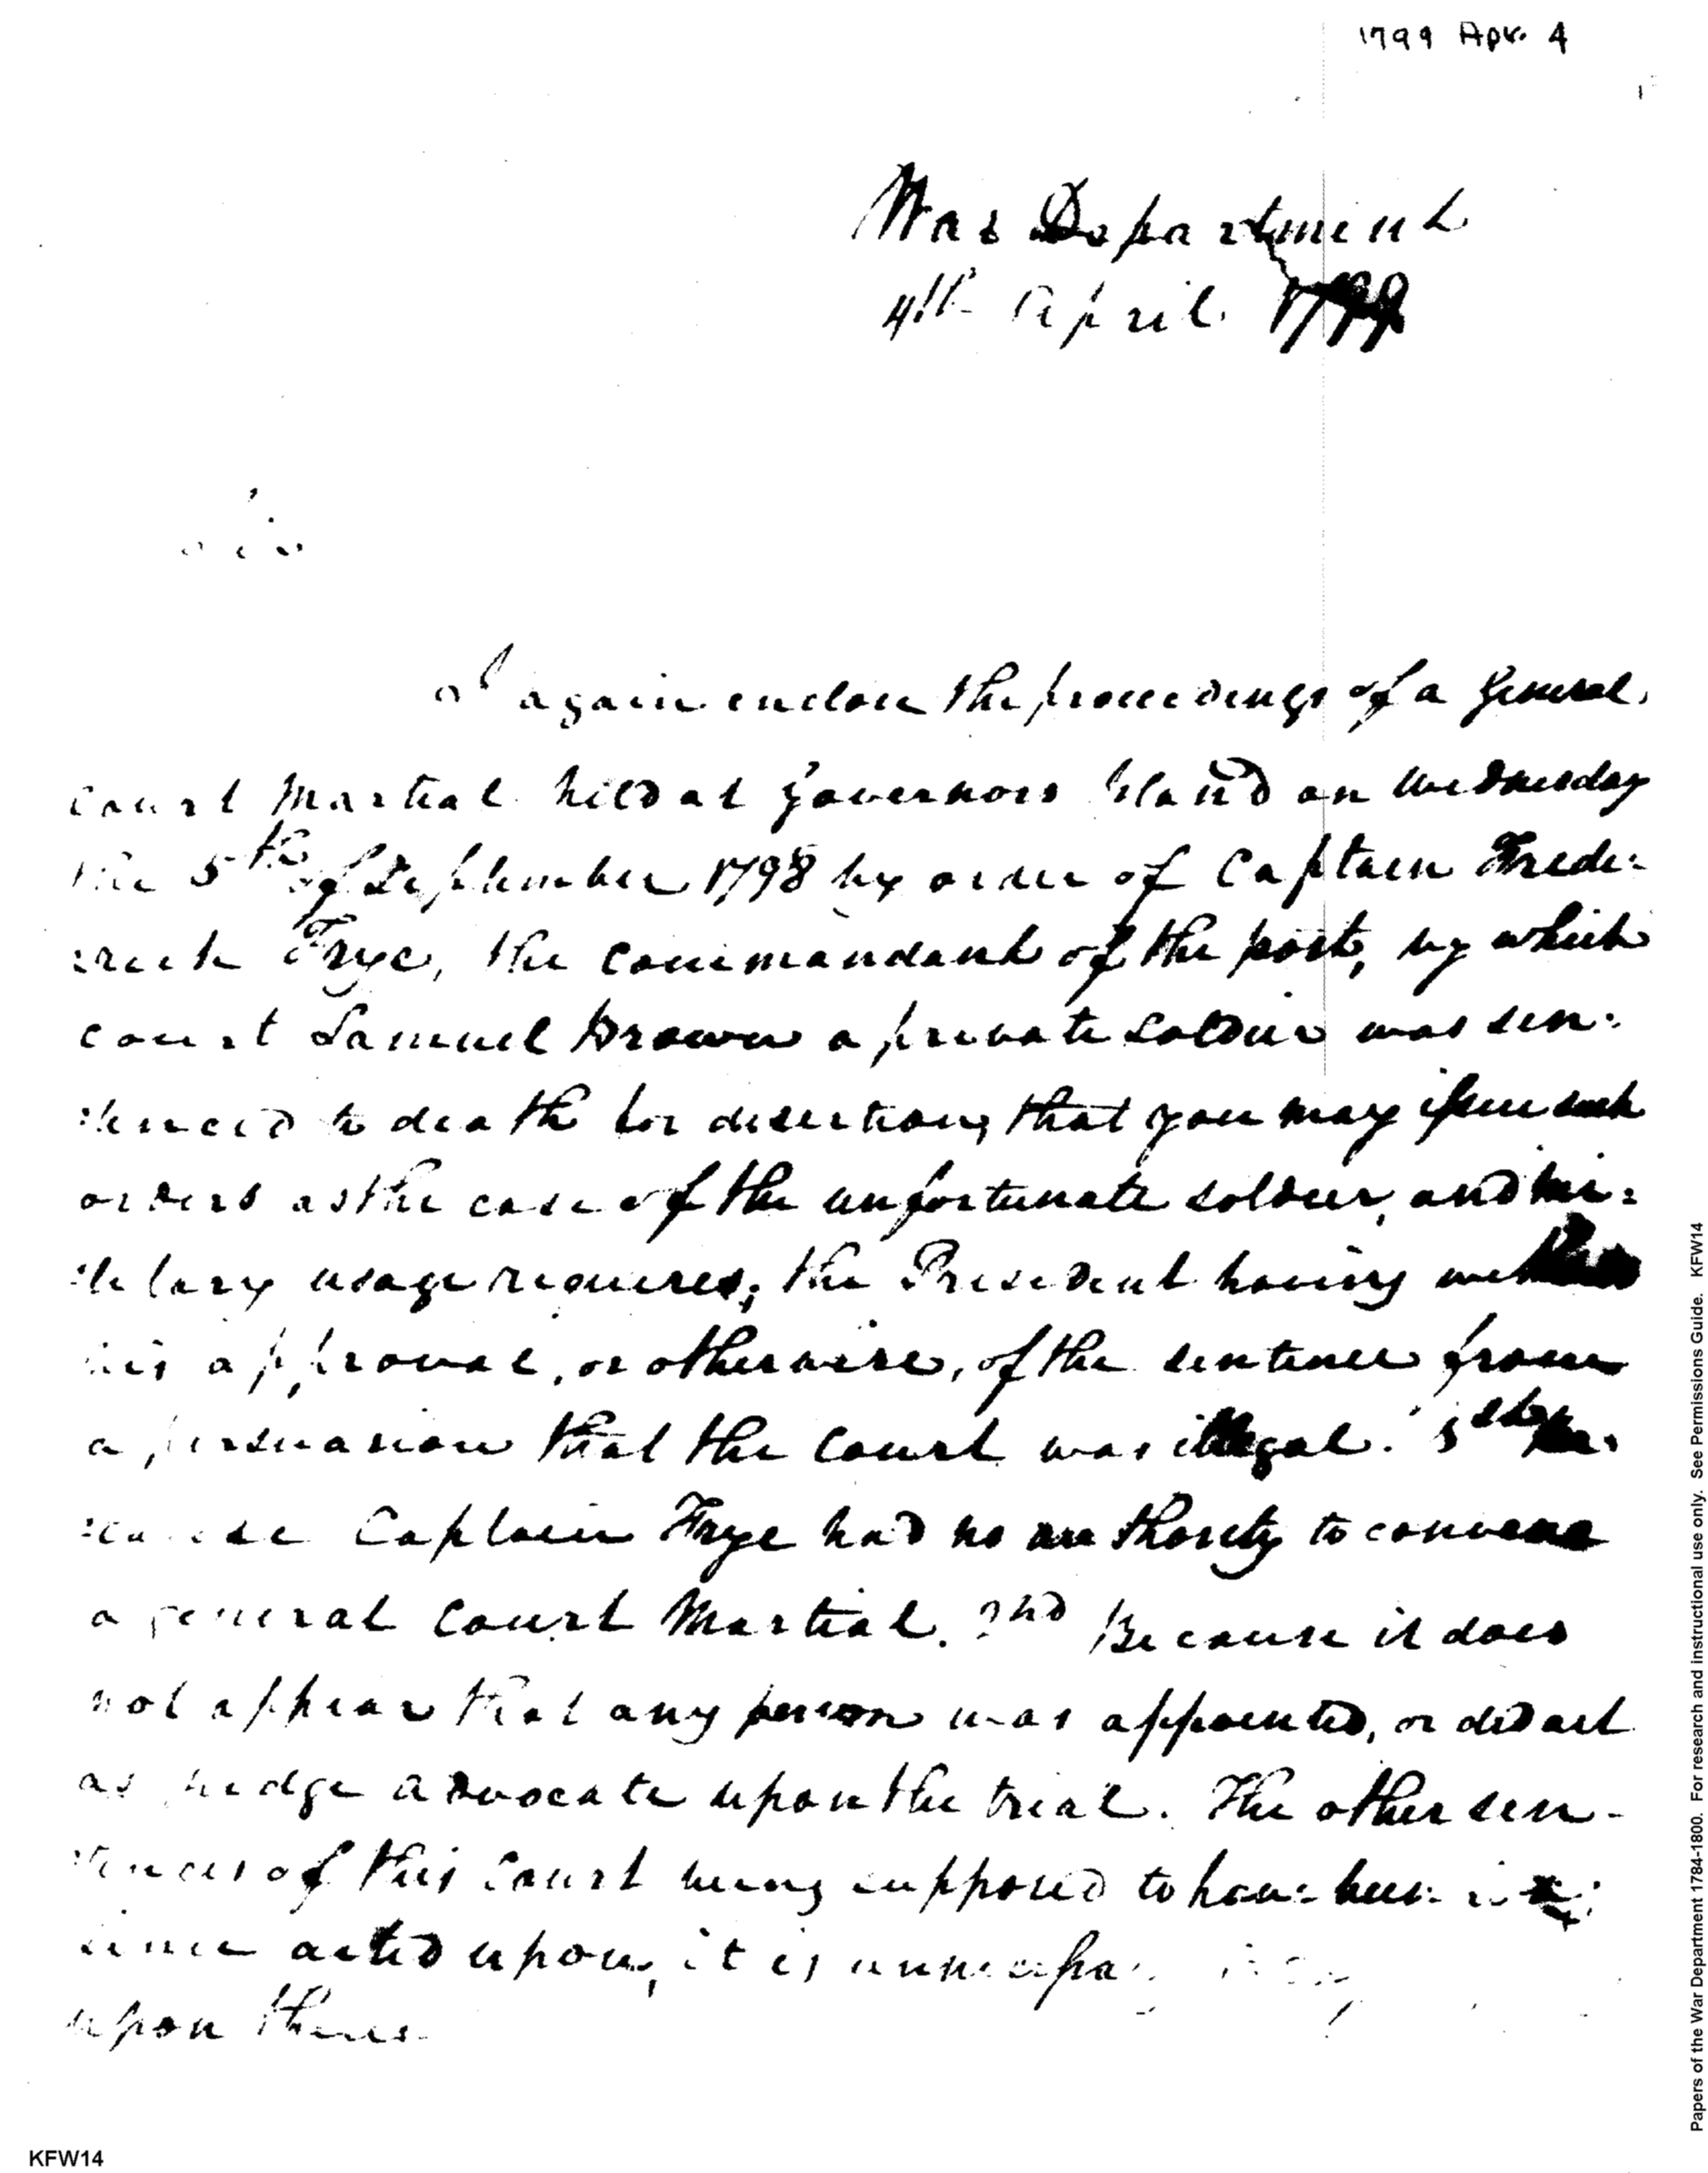 1799 Apr. 4
War Department
4th April 1799
Sir
I again enclose the proceedings of a General
Court Martial held at Governors Island on Wednesday
the 5th of September 1798 by order of Captain Frede:
:rick Frye, the Commandant of the post, by which
court Samuel Brown a private soldier was sen:
:tenced to death for desertion, that you may issue such
orders as the case of the unfortunate soldier, and mi:
:litary usage requires; the President having
his approval, or otherwise, of the sentence from
a persuasion that the Court was illegal. 1st Be:
:cause Captain Frye had no authority to convene
a general Court Martial. 2nd Because it does
not appear that any person was appointed, or did act
as Judge Advocate upon the trial. The other sen-
:tences of this Court being supposed to have been
since acted upon, it is unnecessary
upon them
KFW14
Papers of the War Department 1784-1800. For research and instructional use only. See Permissions Guide. KFW14